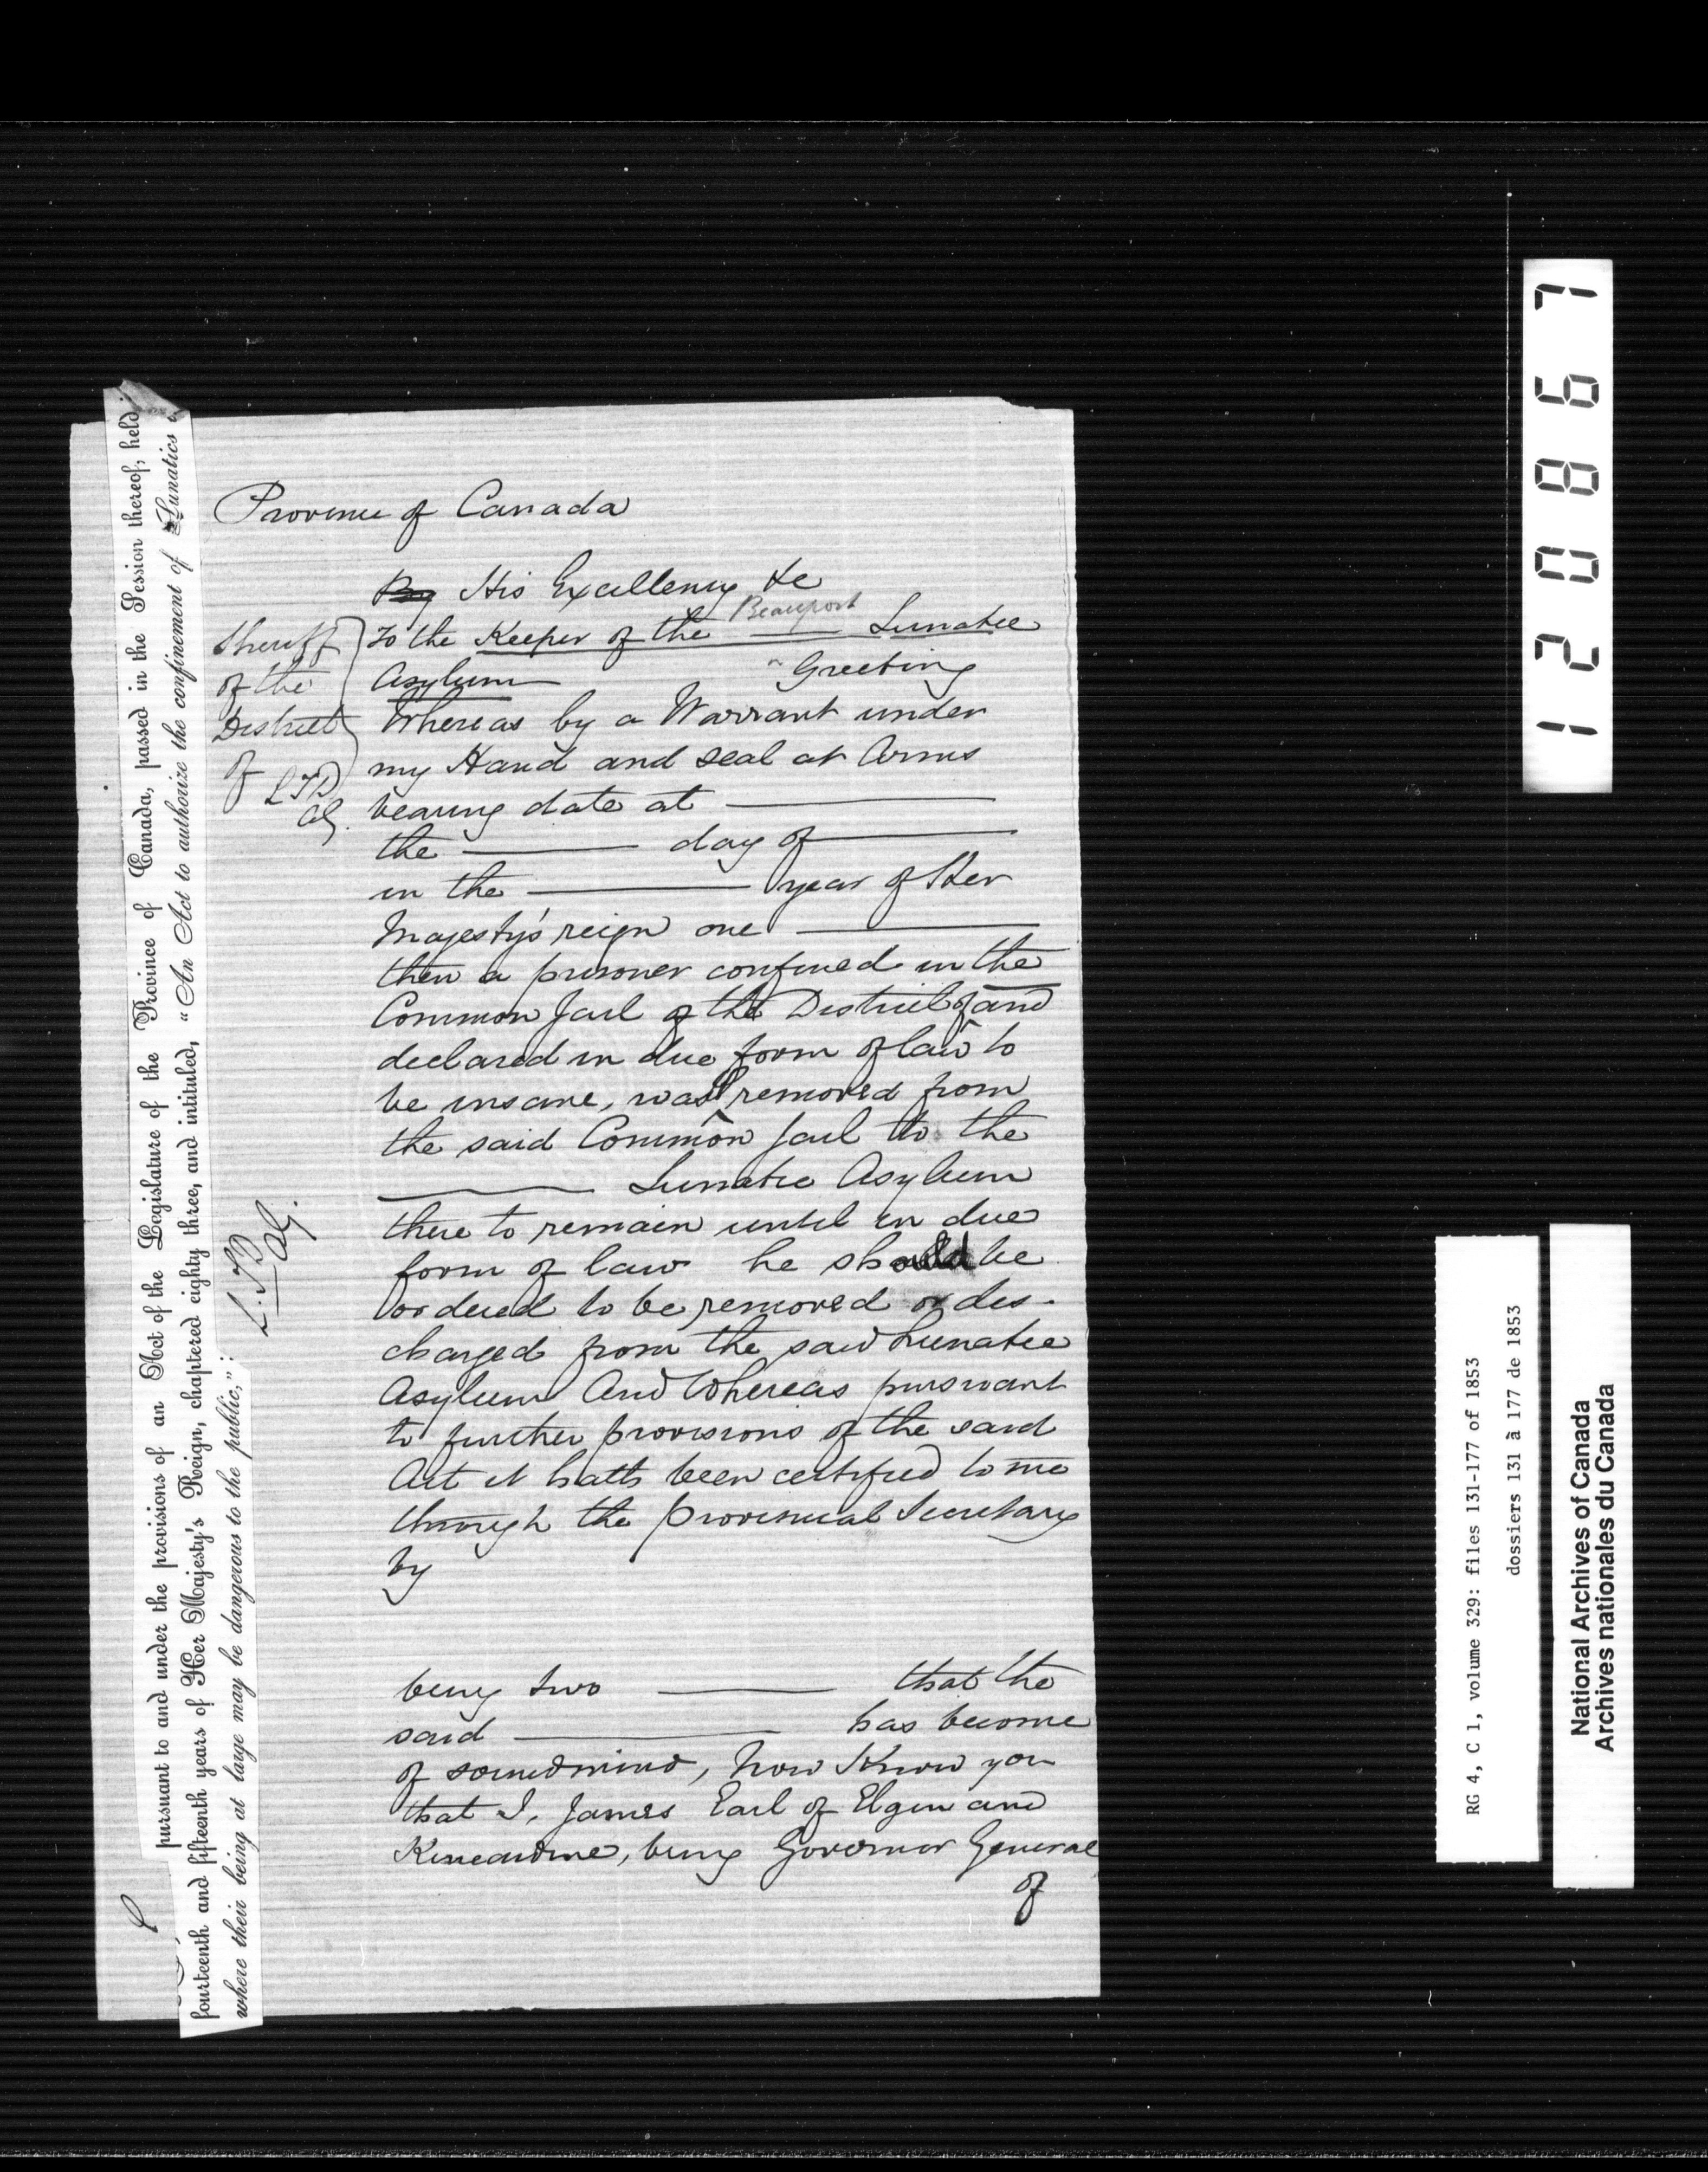 Province of Canada
By His Excellency &c
Beauport
To the Keeper of the Lunatic
Asylum Greeting
Sheriff
of the
District
of
L.T.D
AG.
Whereas by a Warrant under
my Hand and seal at Arms
bearing date at
the day of
in the year of Her
Majesty's reign one
then a prisoner confined in the
Common Jail of the District of and
declared in due form of law to
be insane, was removed from
the said Common Jail to the
Lunatic Asylum
there to remain until in due
form of law he should be
ordered to be removed or dis-
charged from the said Lunatic
Asylum And Whereas pursuant
to further provisions of the said
Act it hath been certified to me
through the Provincial Secretary
by
being two that the
said has become
of sound mind, Now Know you
that I, James Earl of Elgin and
Kincardine, being Governor General
of
pursuant to and under the provisions of an Act of the Legislature of the Province of Canada, passed in the Session thereof, held
fourteenth and fifteenth years of Her Majesty's Reign, chaptered eighty three, and intituled, "An Act to authorize the confinement of Lunatics
where their being at large may be dangerous to the public,";
L.T.D
AG.
120867
RG 4, C 1, volume 329: files 131-177 of 1853
dossiers 131 à 177 de 1853
National Archives of Canada
Archives nationales du Canada